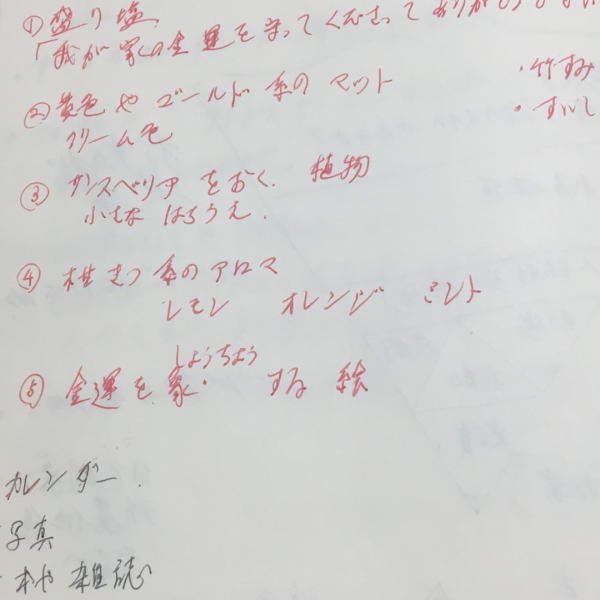 ①盛り塩.
「我が家の金運を守ってくださってありがとうござい
②黄色やゴールド系のマット
クリーム色
・竹すみ
・すいし
③サンスベリアをおく. 植物
小さな はちうえ.
④柑きつ系のアロマ
レモン オレンジ ミント
しょうちょう
⑤金運を象・ する 絵
カレンダー.
写真
本や雑誌